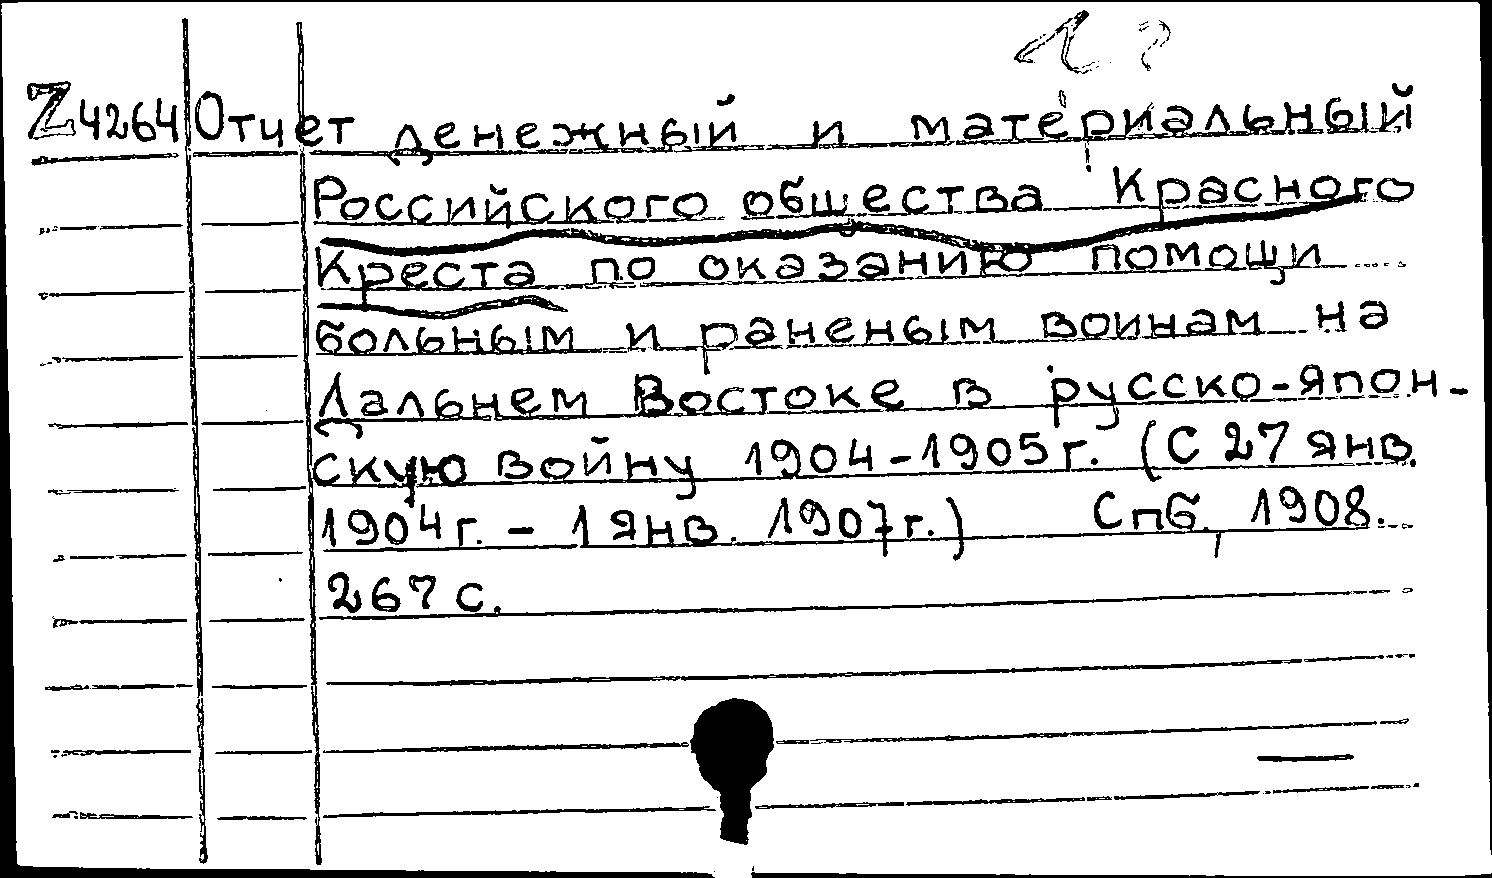 1 ?
Z4264 Отчет денежный и материальный
Российского общества Красного
Креста по оказанию помощи
больным и раненым воинам на
Дальнем Востоке в русско-япон-
скую войну 1904-1905г. (С 27 янв.
1904г. - 1 янв. 1907г.) Спб. 1908.
267 с.